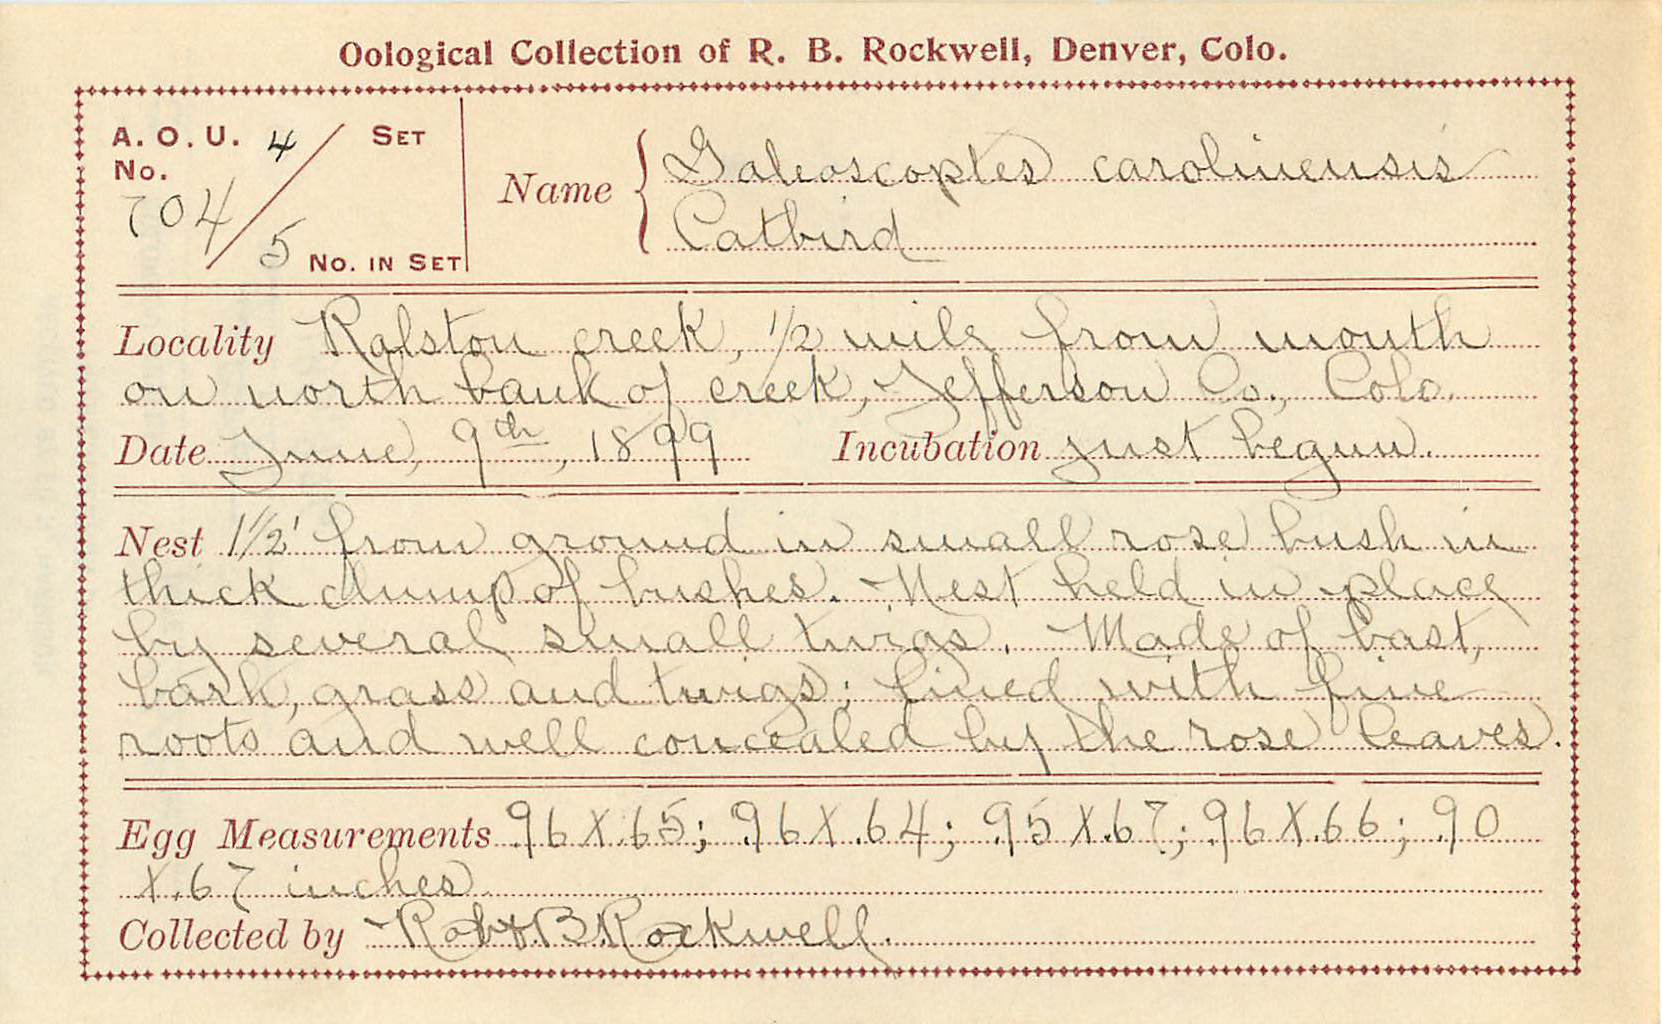 Oological Collection of R. B. Rockwell, Denver, Colo.
A. O. U. 4 / SET
No.
704 / 5 No. IN SET
Name { Galeoscoptes carolinensis
Catbird
Locality Ralston creek, 1/2 mile from mouth
on north bank of creek, Jefferson Co., Colo.
Date June, 9th, 1899 Incubation just begun.
Nest 1 1/2' from ground in small rose bush in
thick clump of bushes. Nest held in place
by several small twigs. Made of bast,
bark, grass and twigs; lined with fine
roots and well concealed by the rose leaves.
Egg Measurements .96 X .65; .96 X .64; .95 X .67; .96 X .66; .90
X .67 inches
Collected by Robt B Rockwell.